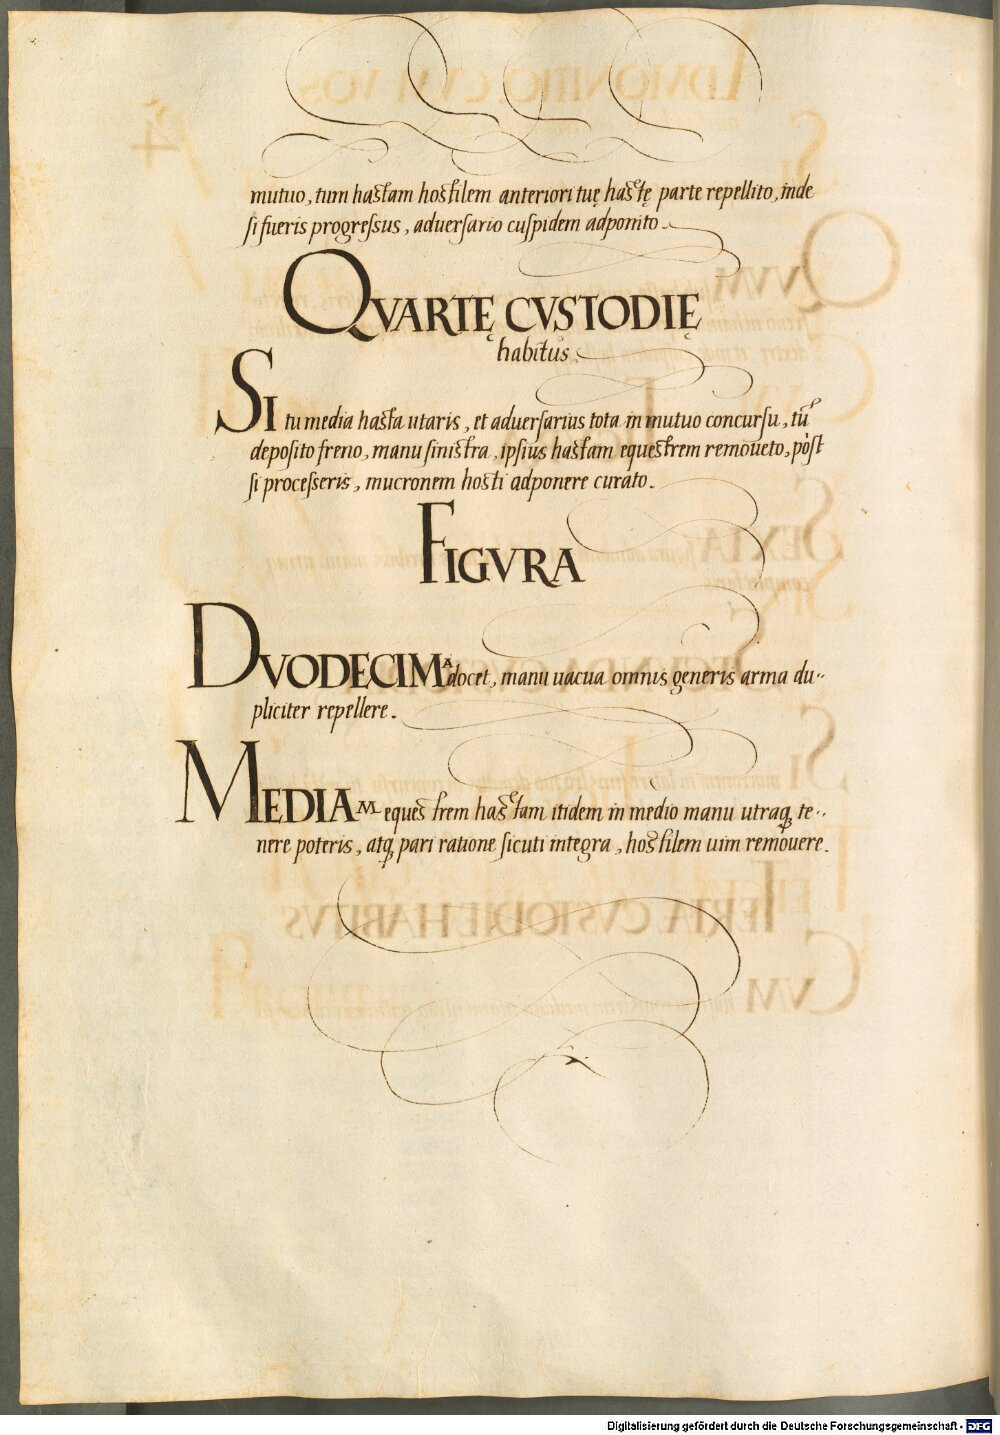 mutuo, tum hastam hostilem anteriori tuę hastę parte repellito, inde
si fueris progressus, adversario cuspidem adponito.
QVARTĘ CVSTODIĘ
habitus.
SI tu media hasta utaris, et adversarius tota in mutuo concursu, tū
deposito freno, manu sinistra, ipsius hastam equestrem removeto, pòst
si processeris, mucronem hosti adponere curato.
FIGVRA
DVODECIMA docet, manu uacua omnis generis arma du..
pliciter repellere.
MEDIAM equestrem hastam itidem in medio manu utraq; te..
nere poteris, atq; pari ratione sicuti integra, hostilem uim removere.
Digitalisierung gefördert durch die Deutsche Forschungsgemeinschaft - DFG